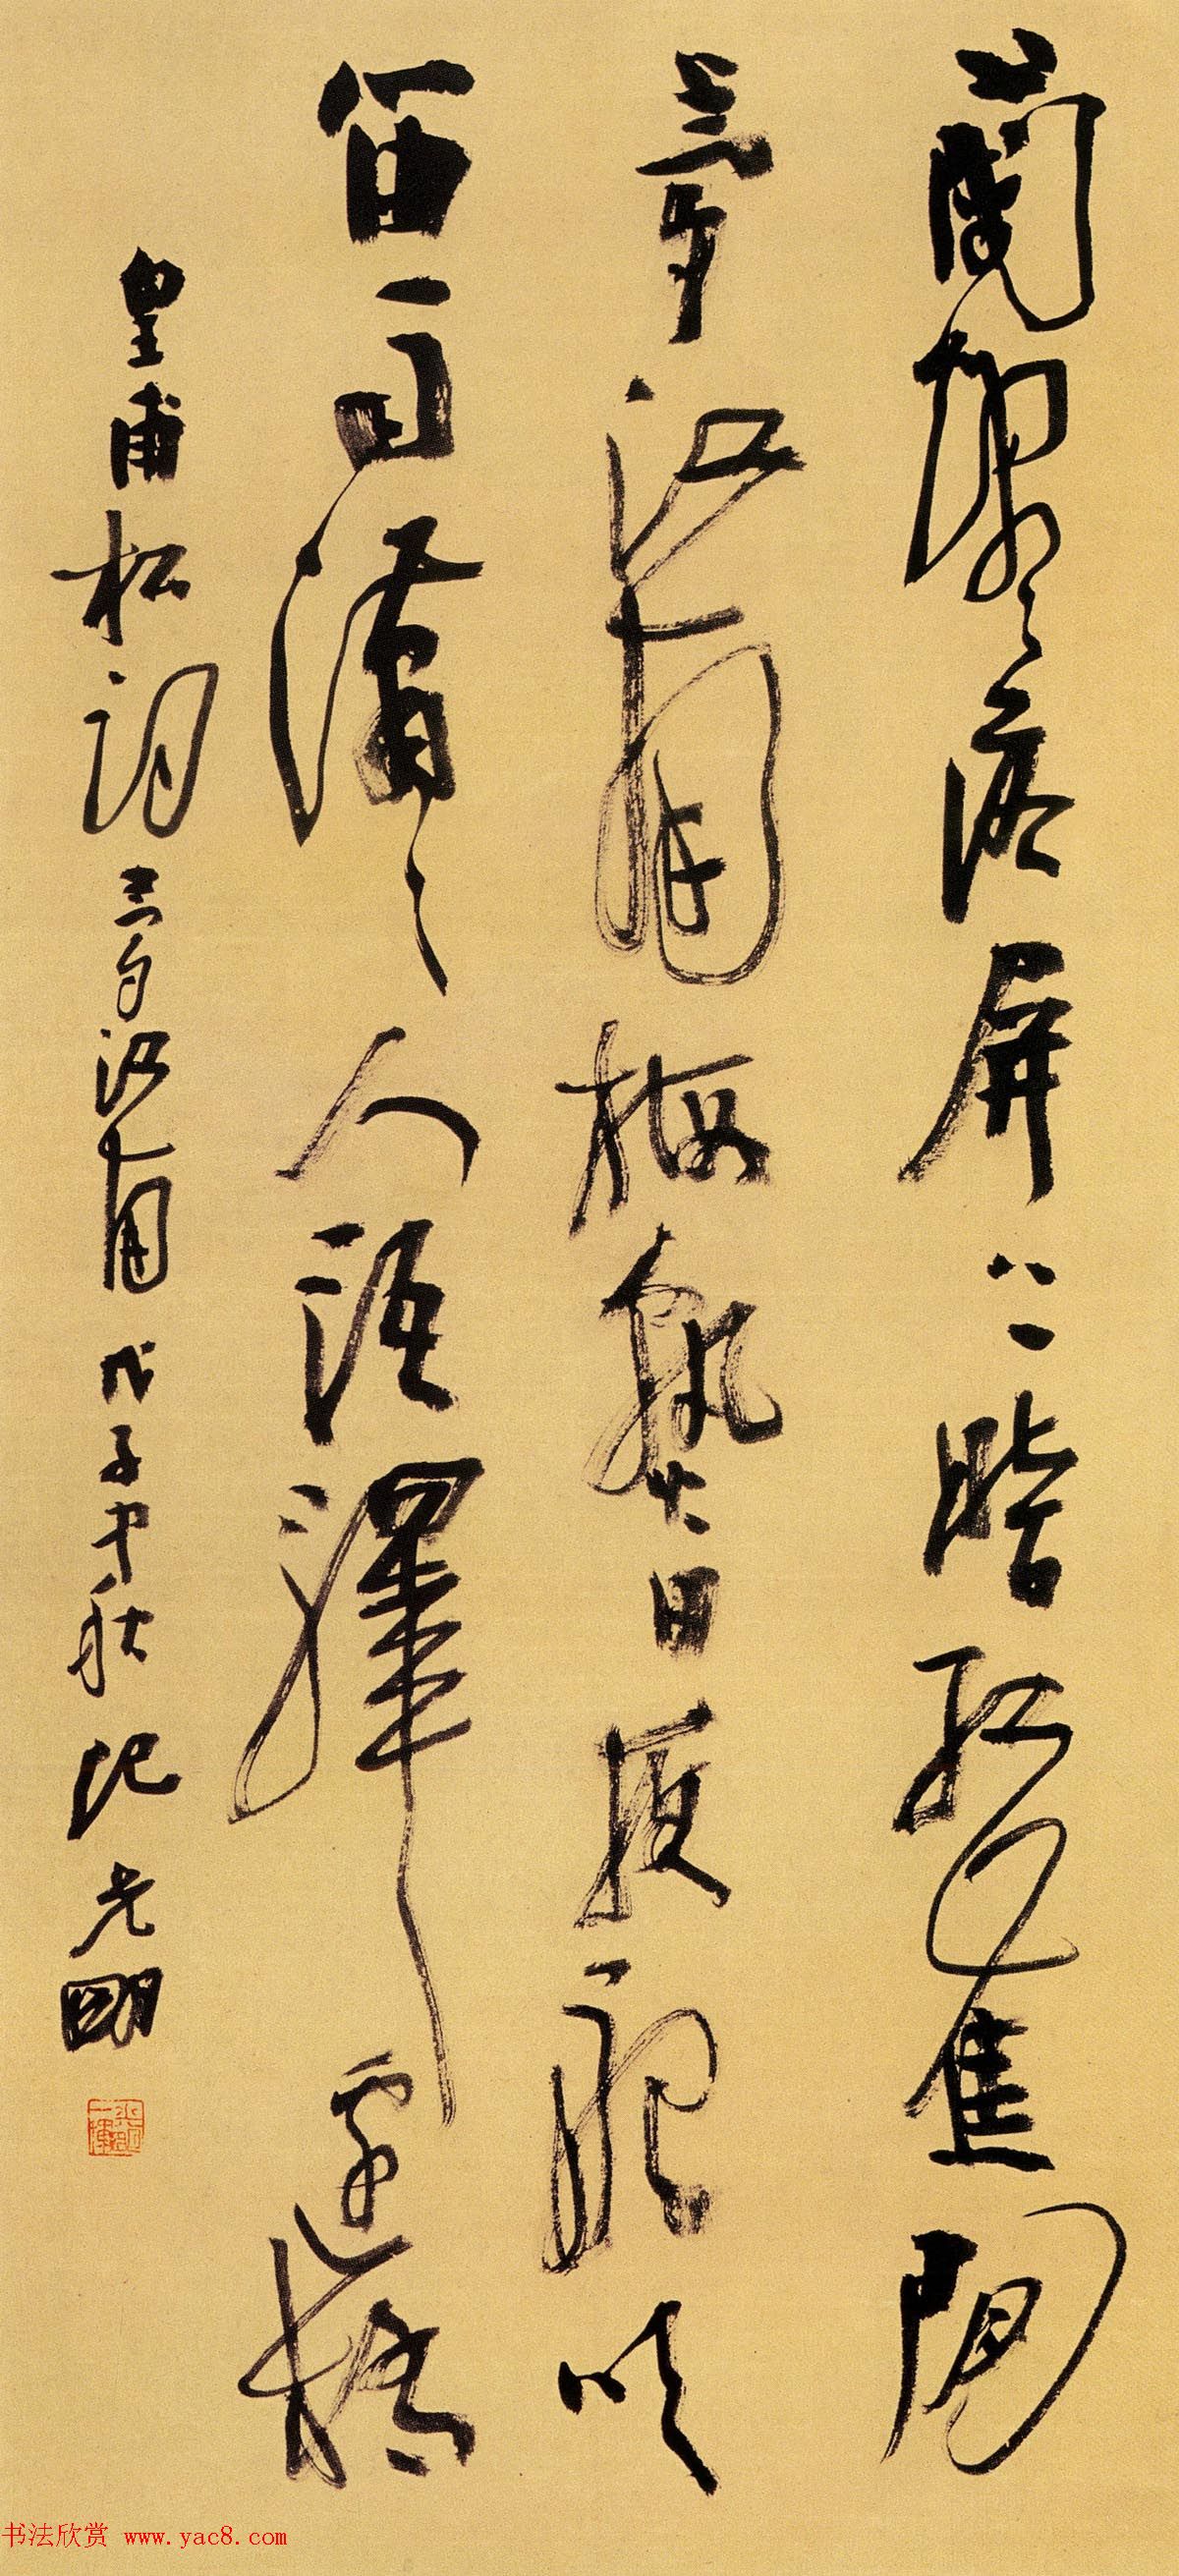 蘭燼落屏上暗紅蕉閒
夢江南梅熟日夜船吹
笛雨瀟々人語驛邊橋
皇甫松詞夢江南 戊子中秋 光明
书法欣赏 www.yac8.com